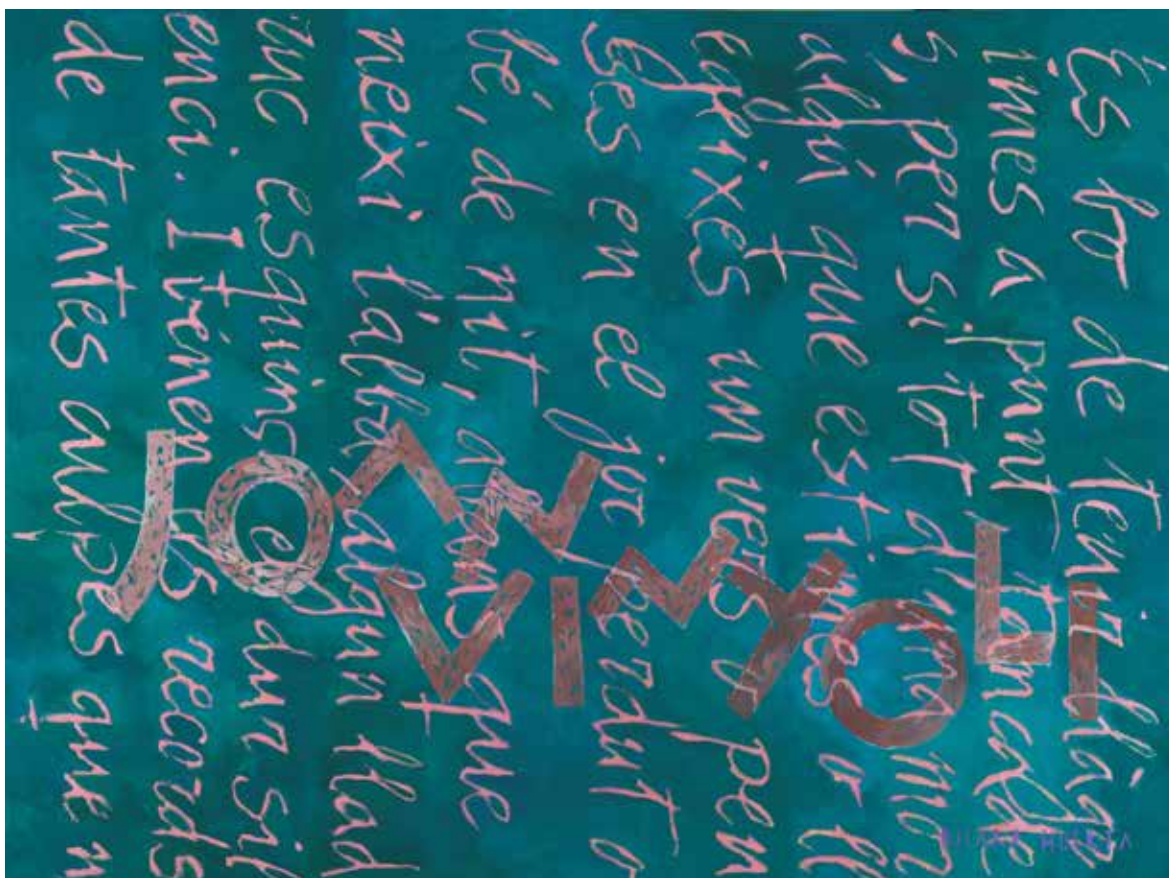 És bo de tenir llàgr
imes a punt, tancade
s, per si tot d'una mor
algú que estimes o ll
egeixes un vers o pen
ses en el joc perdut o
bé, de nit, abans que
neixi l'alba, algun llad
ruc esquinça el dur sil
enci. I vénen els records
de tantes culpes que n
JOAN
VINYOLI
HUERTA